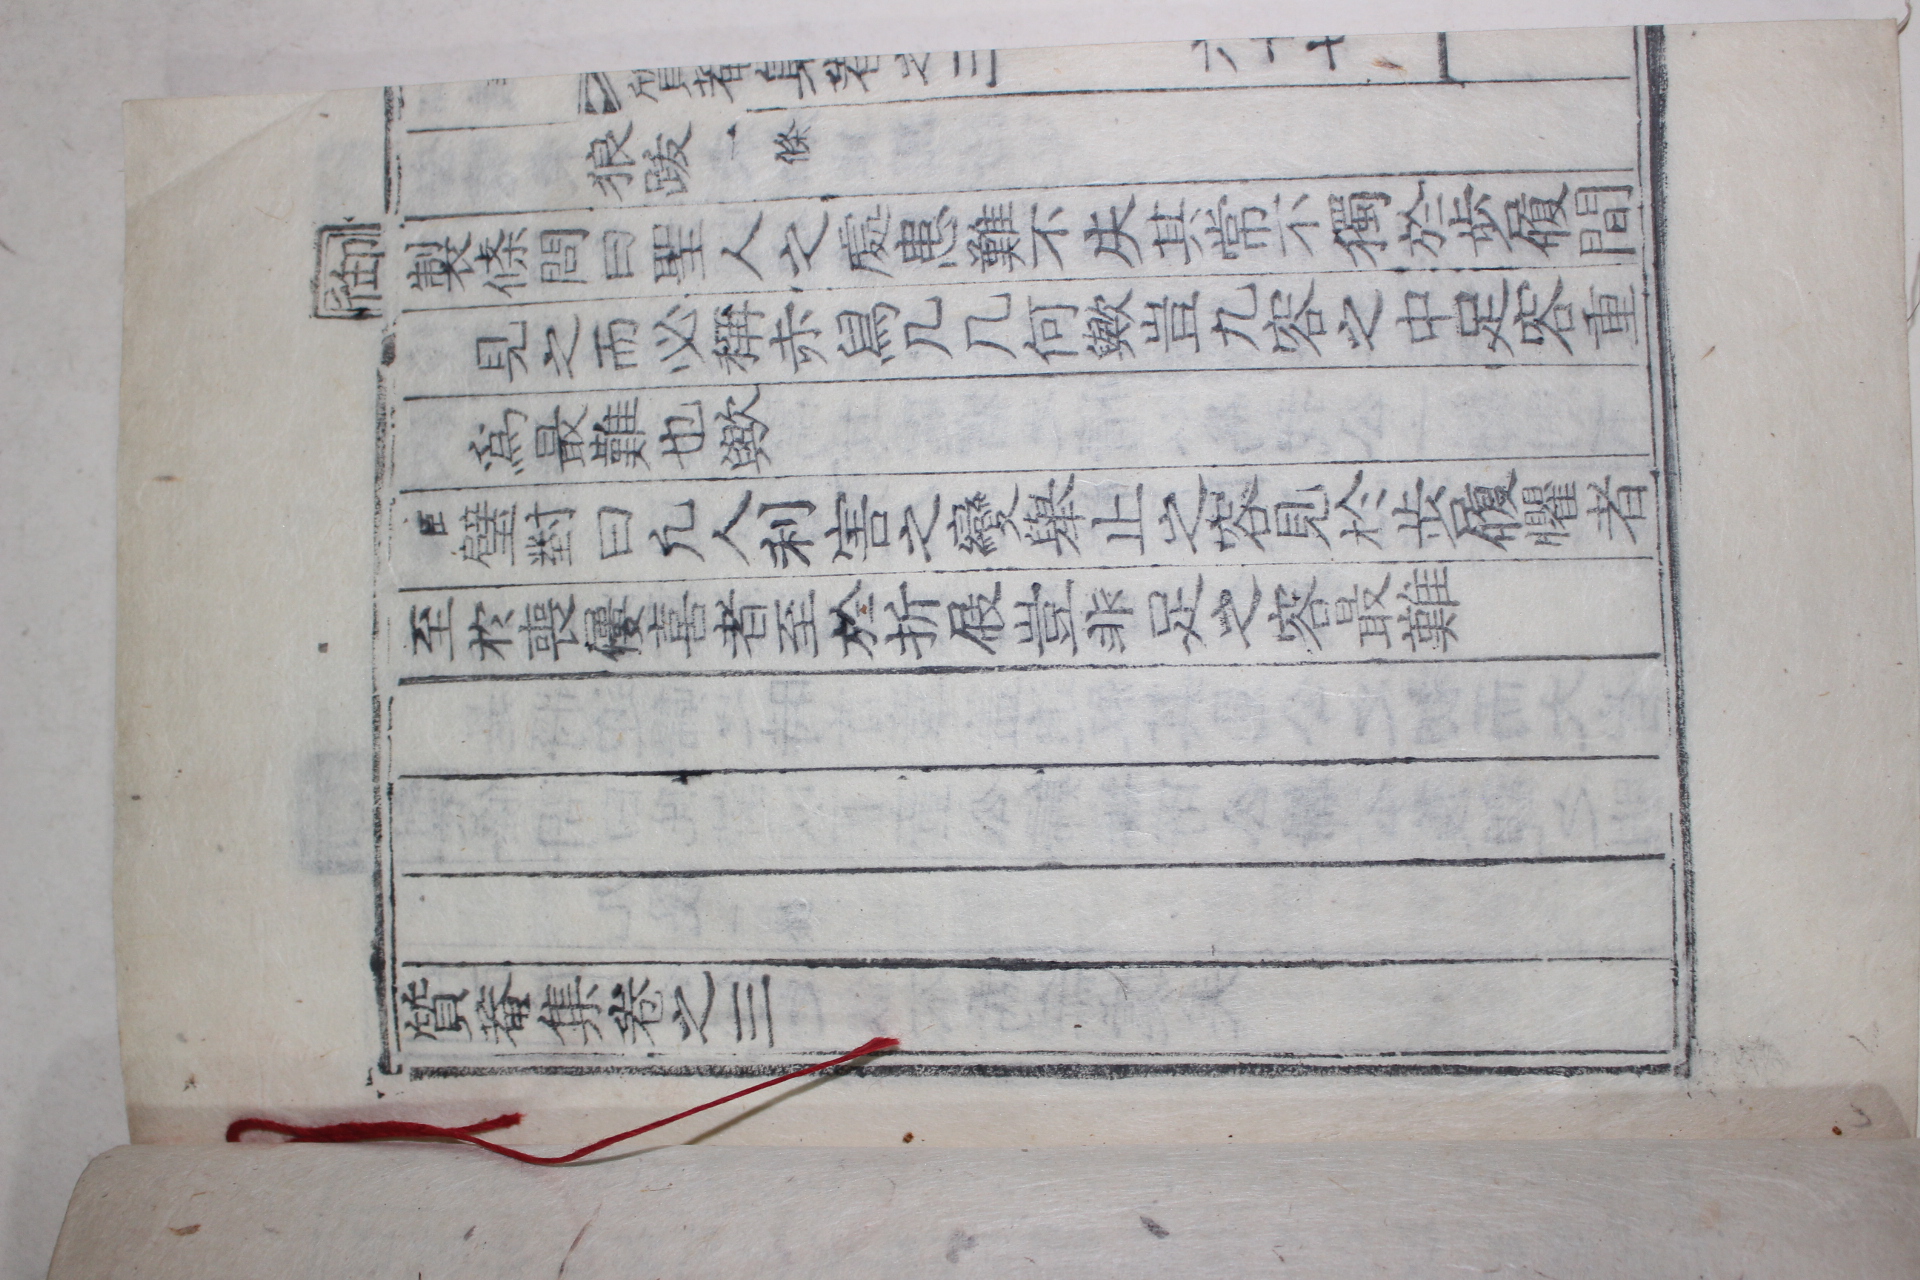 質菴集卷之三 六十七
狼跋一條
御製條問曰聖人之處患難不失其常不獨於步履間
見之而必稱赤舄几几何歟豈九容之中足容重
為最難也歟
臣璧對曰凡人利害之變擧止之容見於步履懼者
至於喪屨喜者至於折屐豈非足之容最難
質菴集卷之三